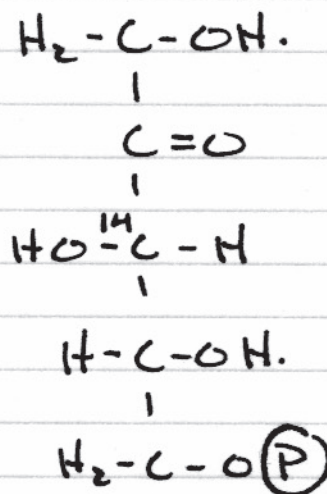 H₂-C-OH.
C=O
HO-¹⁴C-H
H-C-OH.
H₂-C-O Ⓟ